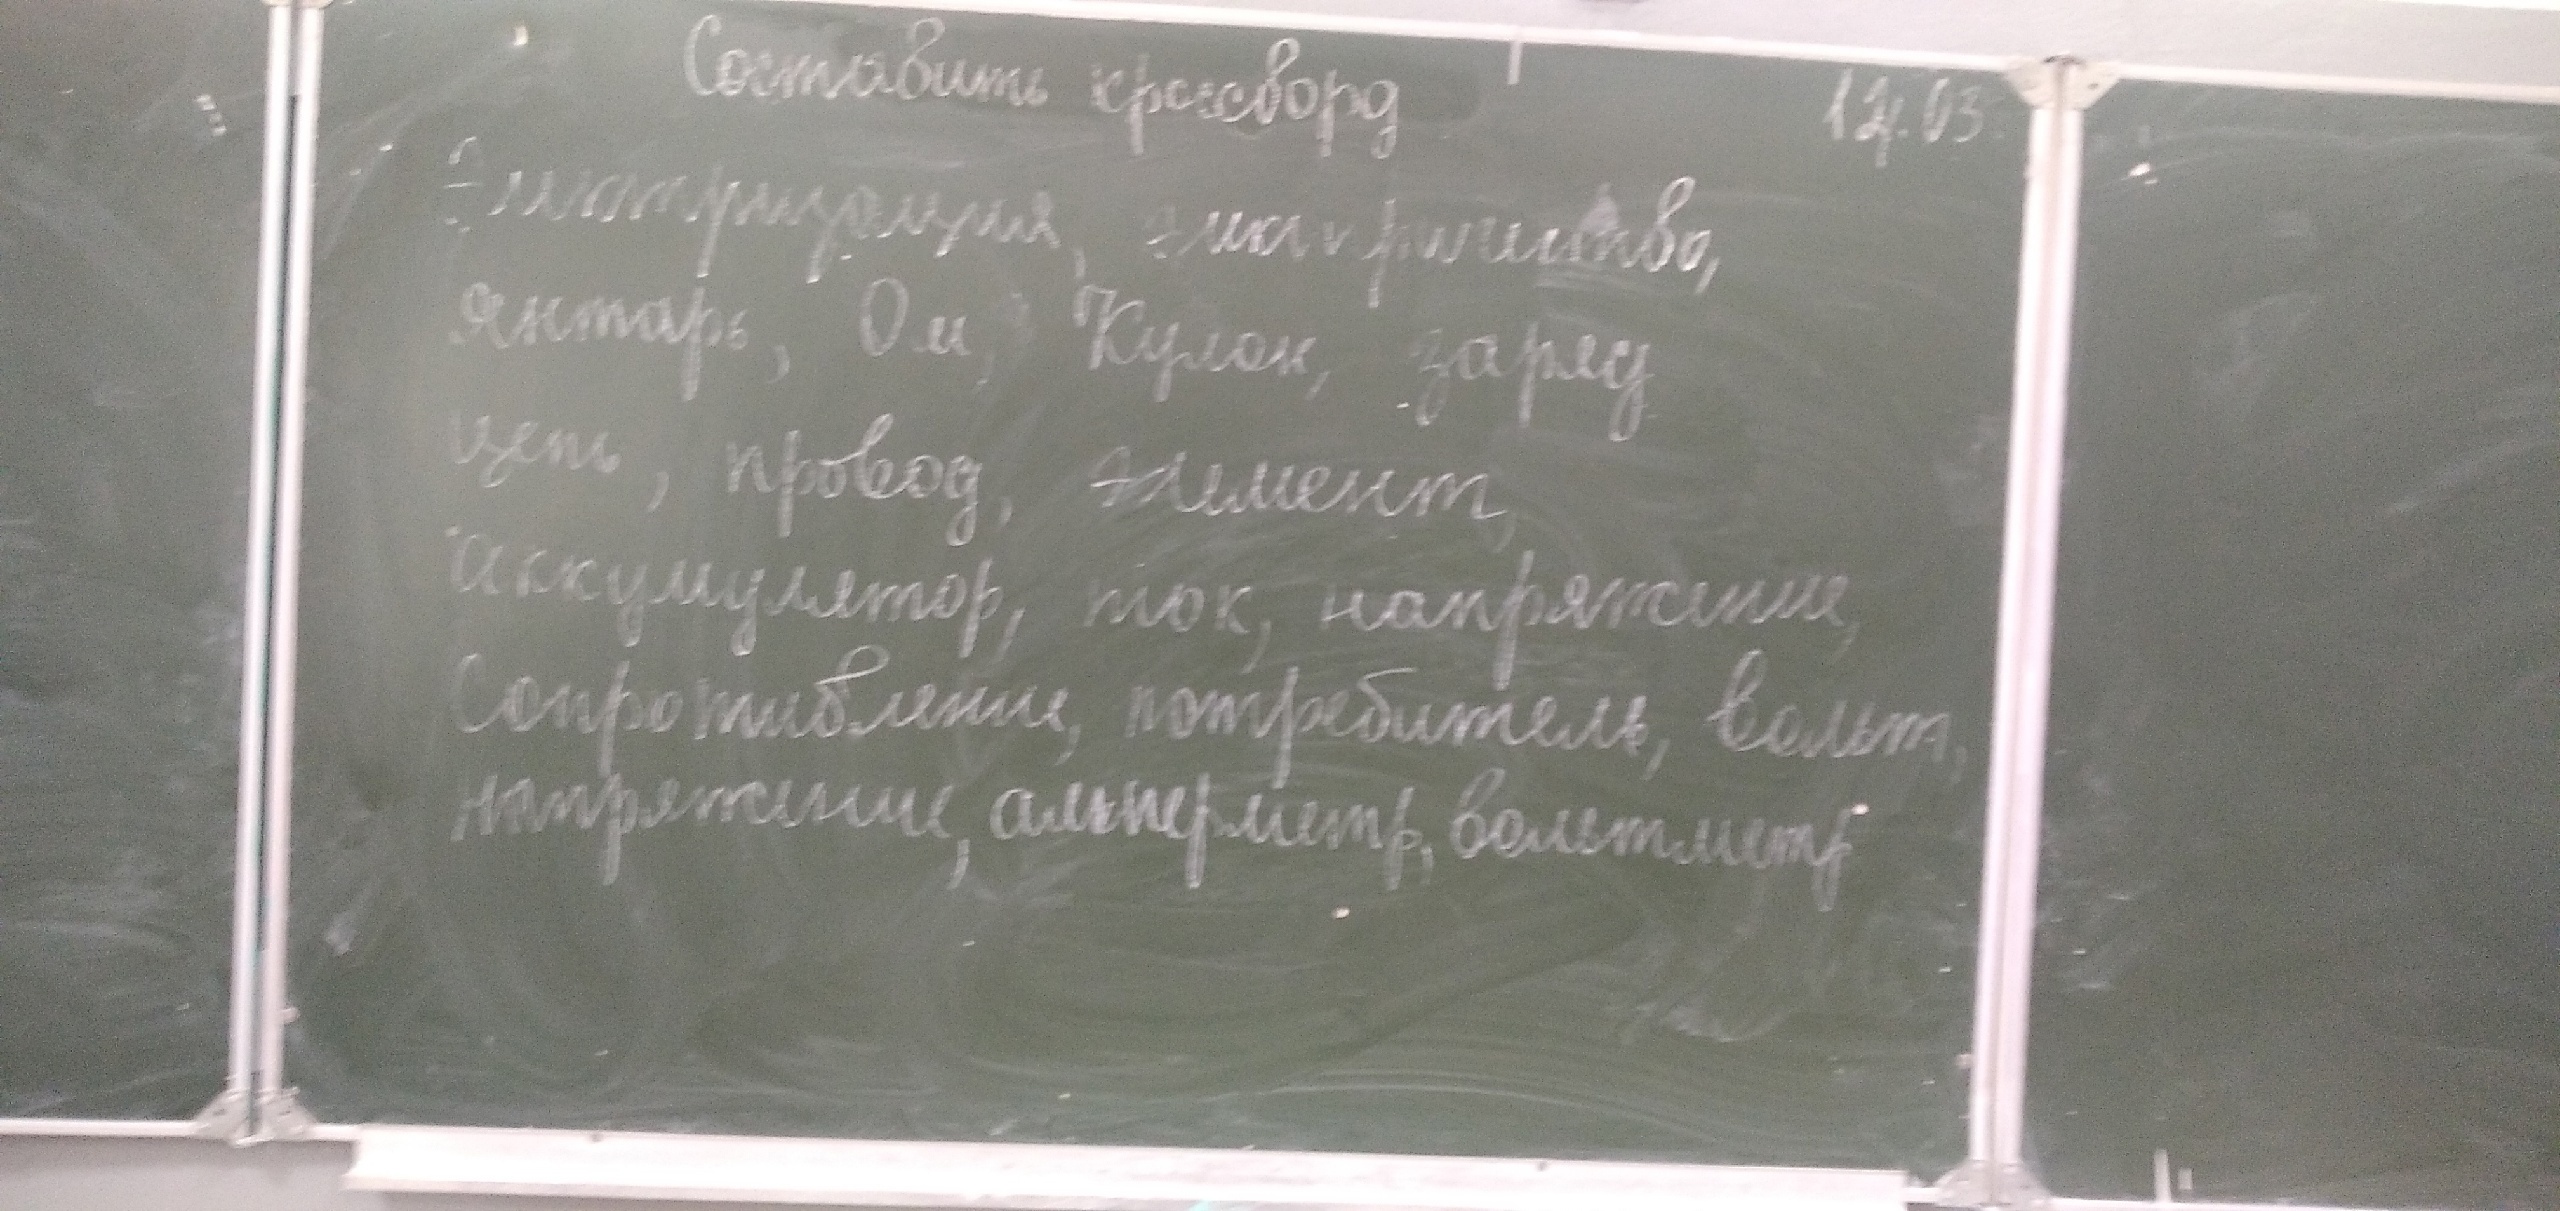 Составить кроссворд
12.03
Электризация, электричество,
янтарь, Ом, Кулон, заряд
цепь, провод, элемент,
аккумулятор, ток, напряжение,
Сопротивление, потребитель, вольт,
напряжение, амперметр, вольтметр